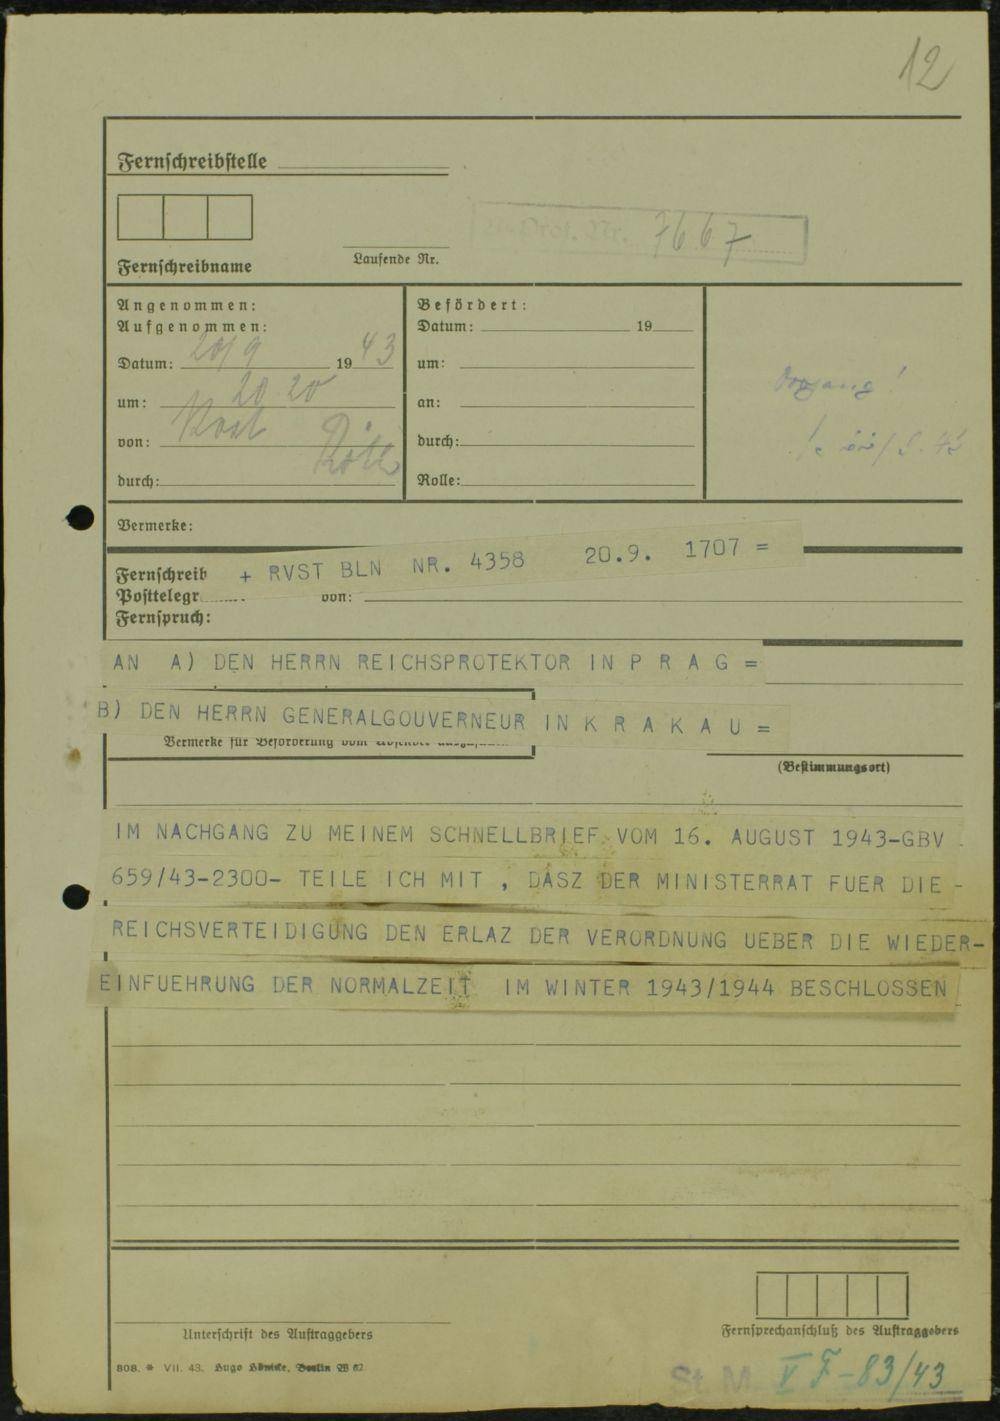 12
Fernschreibstelle
Prot. Nr. 7667
Laufende Nr.
Fernschreibname
Angenommen:
Aufgenommen:
Datum: 20/9 1943
um: 20 20
von:
durch:
Befördert:
Datum: 19
um:
an:
durch:
Rolle:
Vorgang!
Vermerke:
+ RVST BLN NR. 4358 20.9. 1707 =
Fernschreib
Posttelegr
von:
Fernspruch:
AN A) DEN HERRN REICHSPROTEKTOR IN P R A G =
B) DEN HERRN GENERALGOUVERNEUR IN K R A K A U =
Vermerke für Beförderung vom
(Bestimmungsort)
IM NACHGANG ZU MEINEM SCHNELLBRIEF VOM 16. AUGUST 1943-GBV
659/43-2300- TEILE ICH MIT , DASZ DER MINISTERRAT FUER DIE -
REICHSVERTEIDIGUNG DEN ERLAZ DER VERORDNUNG UEBER DIE WIEDER-
EINFUEHRUNG DER NORMALZEIT IM WINTER 1943/1944 BESCHLOSSEN
Unterschrift des Auftraggebers
Fernsprechanschluß des Auftraggebers
808. * VII. 43. Hugo Berlin W 62
St. M. V F-83/43